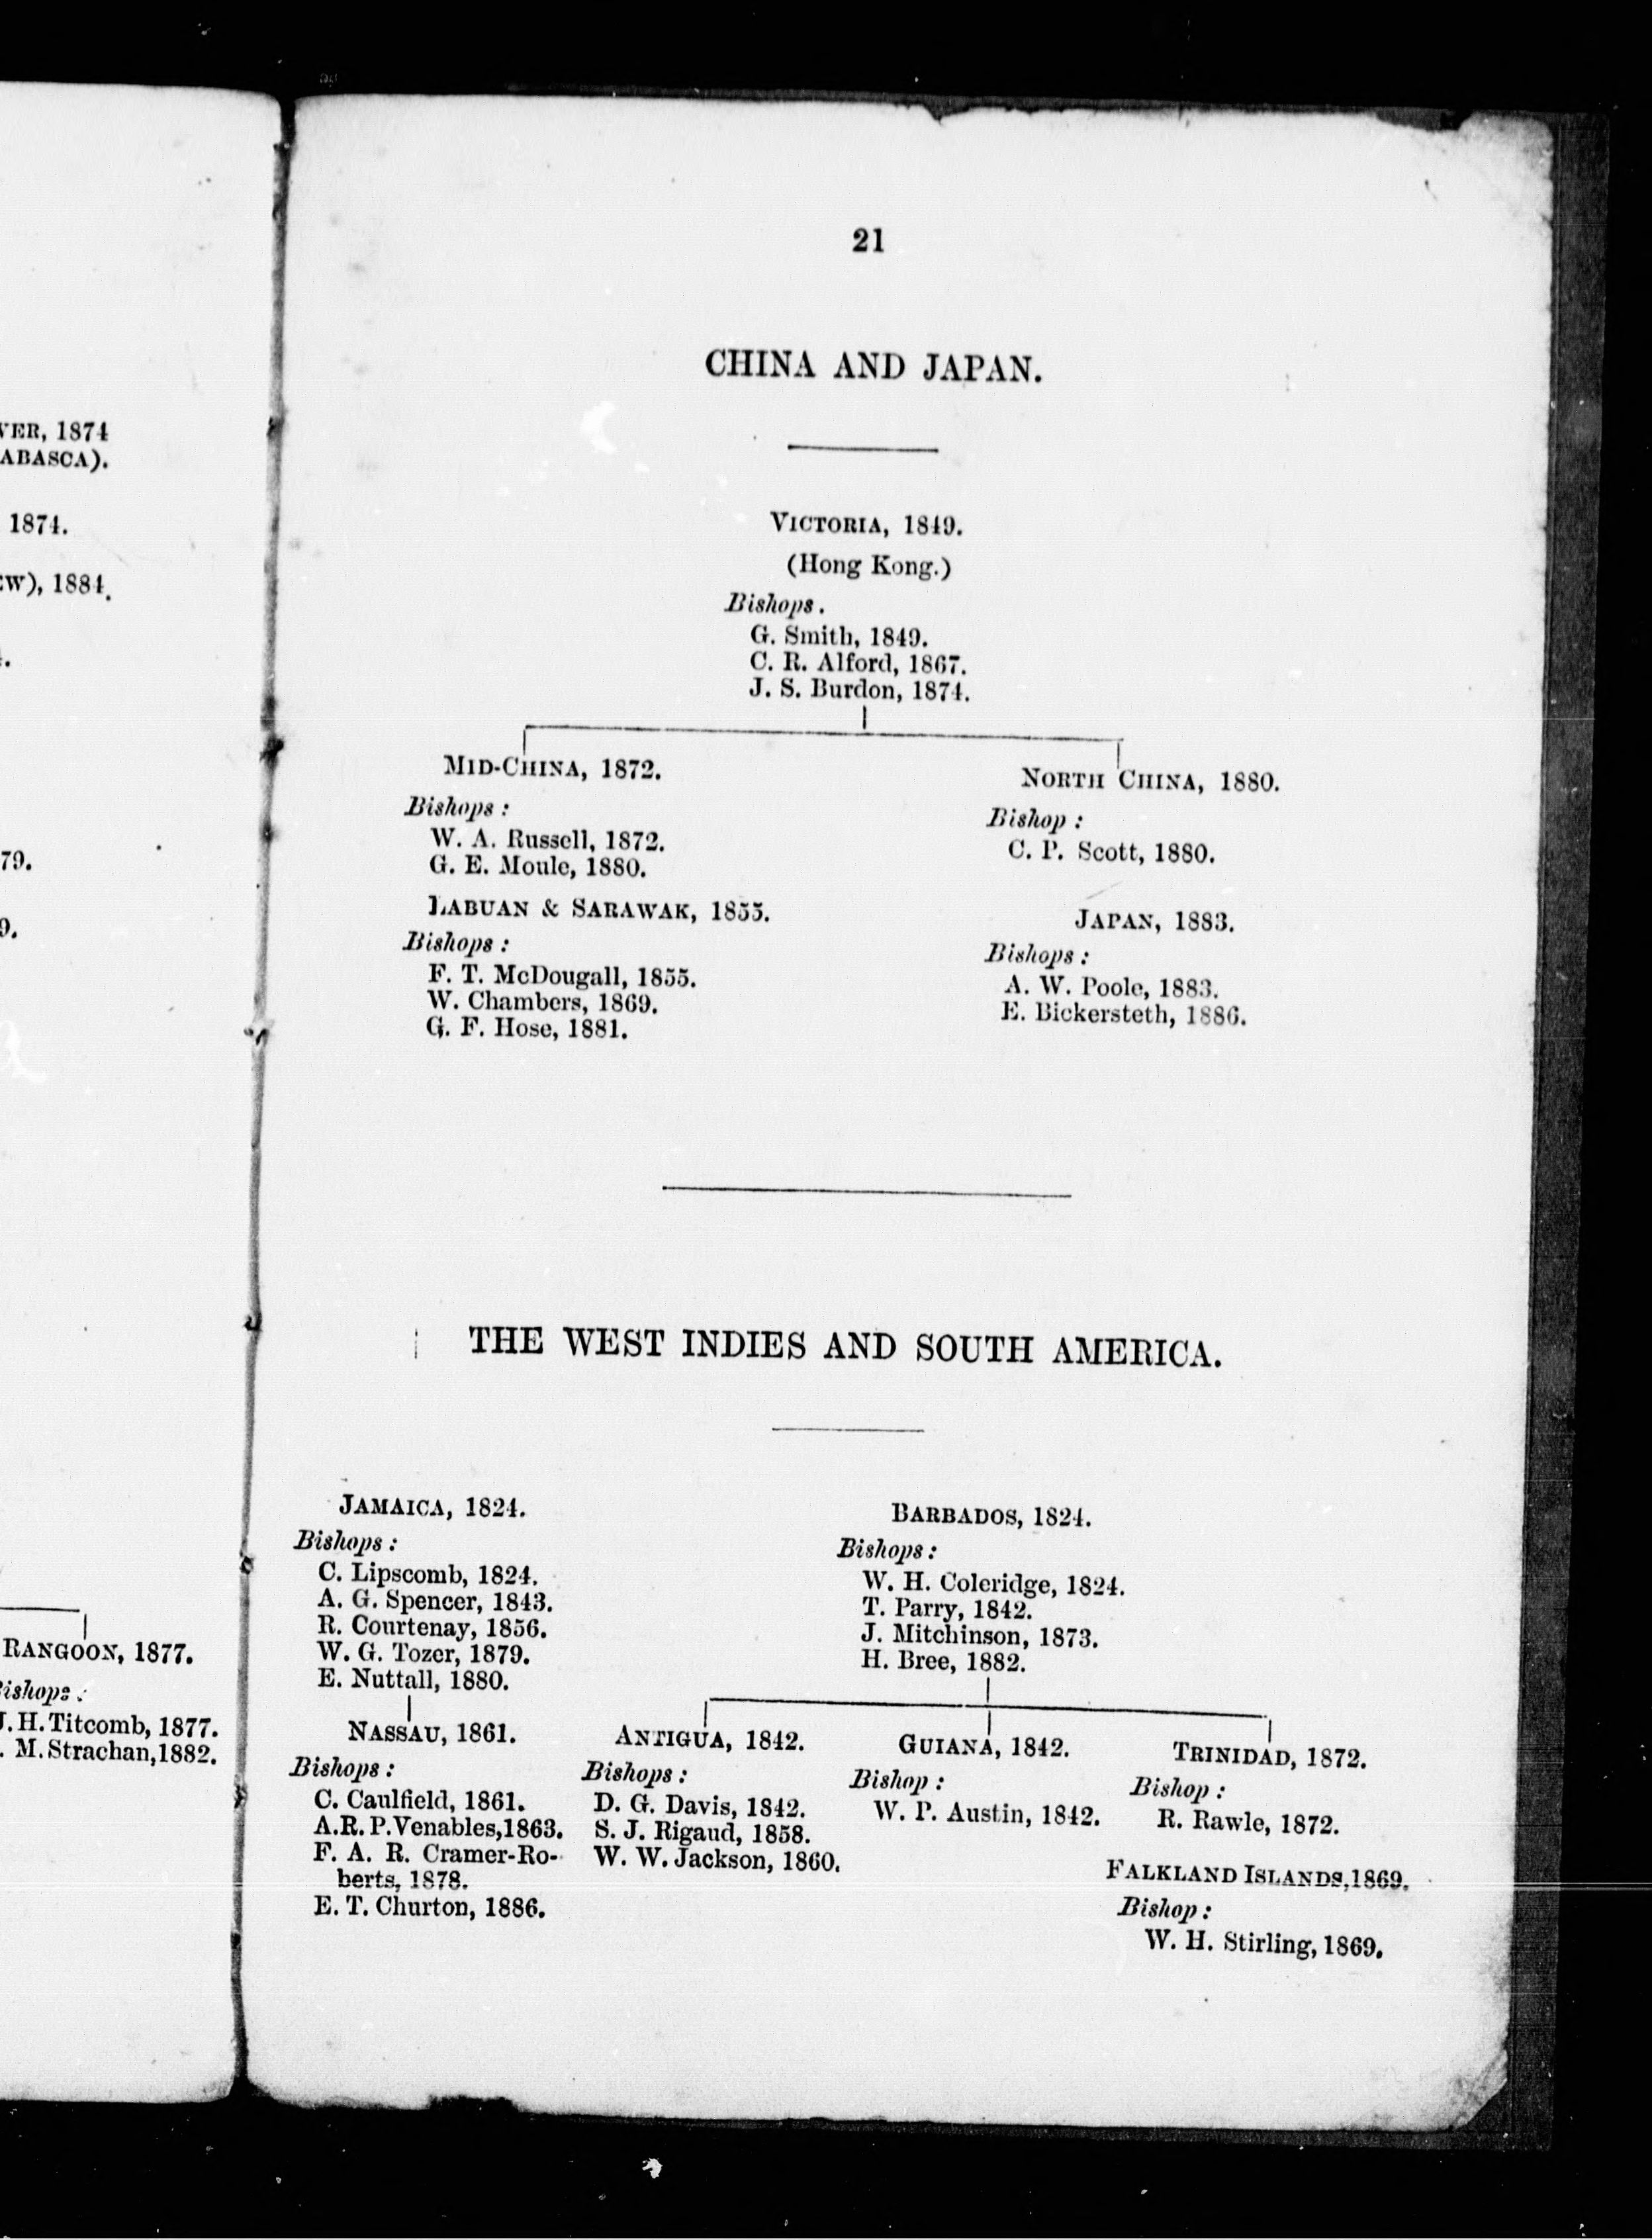 VER, 1874
ABASCA).
1874.
EW), 1884.
79.
9.
RANGOON, 1877.
Bishops:
J. H. Titcomb, 1877.
. M. Strachan, 1882.
21
CHINA AND JAPAN.
VICTORIA, 1849.
(Hong Kong.)
Bishops.
G. Smith, 1849.
C. R. Alford, 1867.
J. S. Burdon, 1874.
MID-CHINA, 1872.
Bishops:
W. A. Russell, 1872.
G. E. Moule, 1880.
LABUAN & SARAWAK, 1855.
Bishops:
F. T. McDougall, 1855.
W. Chambers, 1869.
G. F. Hose, 1881.
NORTH CHINA, 1880.
Bishop:
C. P. Scott, 1880.
JAPAN, 1883.
Bishops:
A. W. Poole, 1883.
E. Bickersteth, 1886.
THE WEST INDIES AND SOUTH AMERICA.
JAMAICA, 1824.
Bishops:
C. Lipscomb, 1824.
A. G. Spencer, 1843.
R. Courtenay, 1856.
W. G. Tozer, 1879.
E. Nuttall, 1880.
NASSAU, 1861.
Bishops:
C. Caulfield, 1861.
A.R.P.Venables,1863.
F. A. R. Cramer-Ro-
berts, 1878.
E. T. Churton, 1886.
BARBADOS, 1824.
Bishops:
W. H. Coleridge, 1824.
T. Parry, 1842.
J. Mitchinson, 1873.
H. Bree, 1882.
ANTIGUA, 1842.
Bishops:
D. G. Davis, 1842.
S. J. Rigaud, 1858.
W. W. Jackson, 1860.
GUIANA, 1842.
Bishop:
W. P. Austin, 1842.
TRINIDAD, 1872.
Bishop:
R. Rawle, 1872.
FALKLAND ISLANDS, 1869.
Bishop:
W. H. Stirling, 1869.